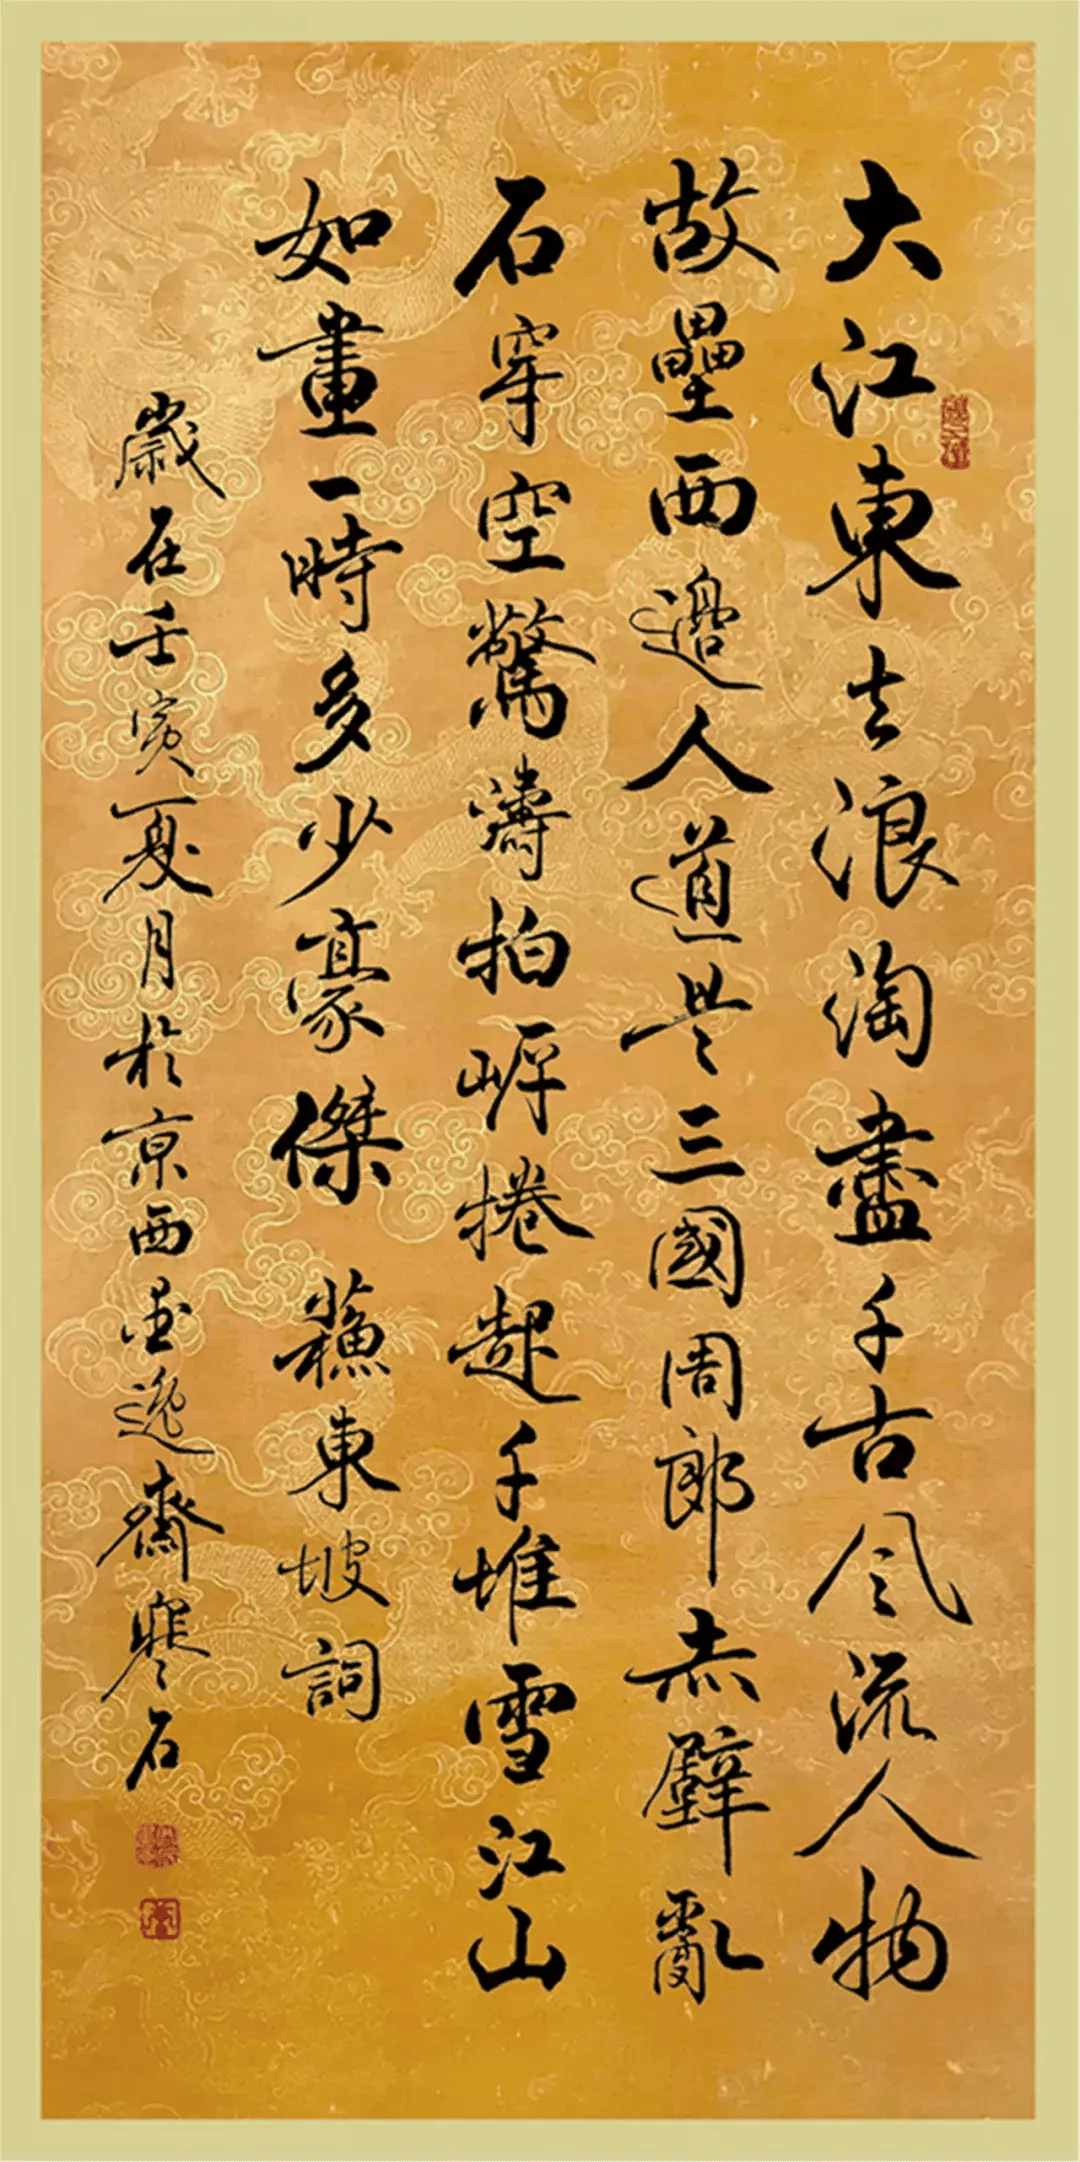 大江東去浪淘盡千古風流人物
故壘西邊人道是三國周郎赤壁亂
石穿空驚濤拍岸捲起千堆雪江山
如畫一時多少豪傑 蘇東坡詞
歲在壬寅夏月於京西墨逸齋寒石